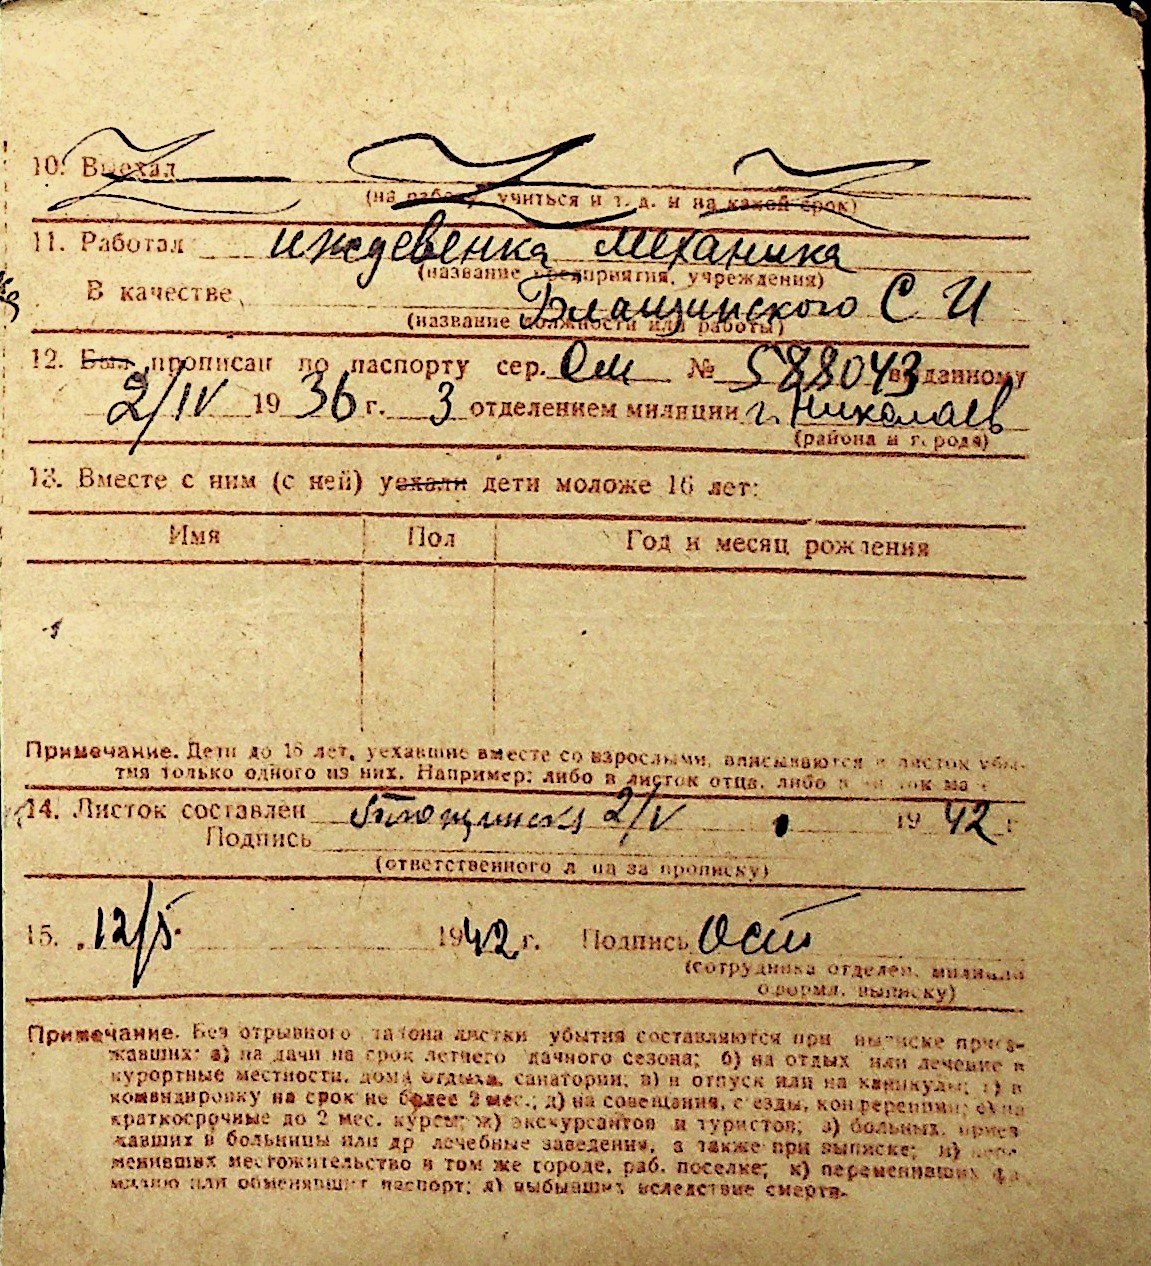 10. Выехал
(на работу, учиться и т. д. и на какой срок)
11. Работал иждевенка механика
(название предприятия, учреждения)
В качестве Блащинского С И
(название должности или работы)
12. Был прописан по паспорту сер. ОМ № 588043 выданному
2/IV 1936 г. 3 отделением милиции г. Николаев
(района и города)
13. Вместе с ним (с ней) уехали дети моложе 16 лет:
Имя Пол Год и месяц рождения
Примечание. Дети до 16 лет, уехавшие вместе со взрослыми, вписываются в листок убы-
тия только одного из них. Например: либо в листок отца, либо в листок ма
14. Листок составлен 2/V 1942 г
Подпись
(ответственного лица за прописку)
15. 12/5. 1942 г. Подпись
(сотрудника отделен. милиции
оформл. выписку)
Примечание. Без отрывного талона листки убытия составляются при выписке приез-
жавших: а) на дачи на срок летнего дачного сезона; б) на отдых или лечение в
курортные местности, дома отдыха, санатории; в) в отпуск или на каникулы; г) в
командировку на срок не более 2 мес.; д) на совещания, с'езды, конференции; е) на
краткосрочные до 2 мес. курсы; ж) экскурсантов и туристов; з) больных, приез
жавших в больницы или др лечебные заведения, а также при выписке; и) пере-
менивших местожительство в том же городе, раб. поселке; к) переменивших фа
милию или обменявших паспорт; л) выбывших вследствие смерти.